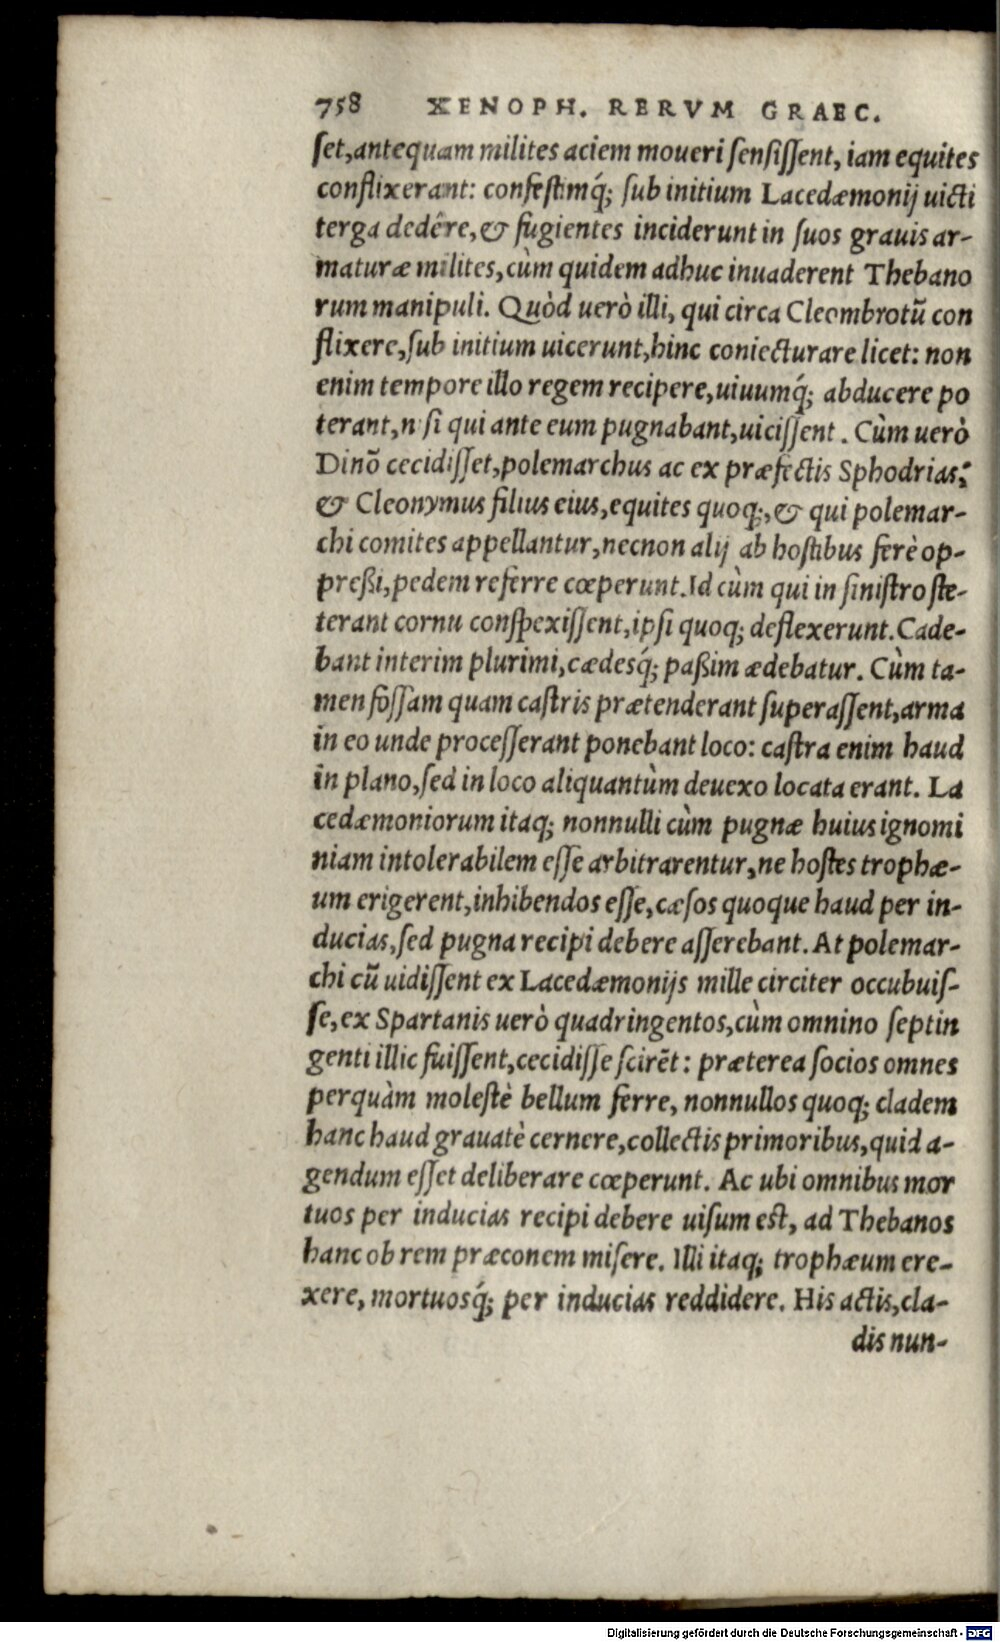 758 XENOPH. RERVM GRAEC.
ſet,antequam milites aciem moueri ſenſiſſent, iam equites
conflixerant: confeſtimq́; ſub initium Lacedæmonij uicti
terga dedêre,& fugientes inciderunt in ſuos grauis ar-
maturæ milites,cùm quidem adhuc inuaderent Thebano
rum manipuli. Quòd uerò illi, qui circa Cleombrotũ con
flixere,ſub initium uicerunt,hinc coniecturare licet: non
enim tempore illo regem recipere,uiuumq́; abducere po
terant,niſi qui ante eum pugnabant,uiciſſent. Cùm uerò
Dinõ cecidiſſet,polemarchus ac ex præfectis Sphodrias:
& Cleonymus filius eius,equites quoq;,& qui polemar-
chi comites appellantur,necnon alij ab hoſtibus ferè op-
preßi,pedem referre cœperunt.Id cùm qui in ſiniſtro ſte-
terant cornu conſpexiſſent,ipſi quoq; deflexerunt.Cade-
bant interim plurimi,cædesq́; paßim ædebatur. Cùm ta-
men foſſam quam caſtris prætenderant ſuperaſſent,arma
in eo unde proceſſerant ponebant loco: caſtra enim haud
in plano,ſed in loco aliquantùm deuexo locata erant. La
cedæmoniorum itaq; nonnulli cùm pugnæ huius ignomi
niam intolerabilem eſſe arbitrarentur,ne hoſtes trophæ-
um erigerent,inhibendos eſſe,cæſos quoque haud per in-
ducias,ſed pugna recipi debere aſſerebant. At polemar-
chi cũ uidiſſent ex Lacedæmonijs mille circiter occubuiſ-
ſe,ex Spartanis uerò quadringentos,cùm omnino ſeptin
genti illic fuiſſent,cecidiſſe ſcirẽt: præterea ſocios omnes
perquàm moleſtè bellum ferre, nonnullos quoq; cladem
hanc haud grauatè cernere,collectis primoribus,quid a-
gendum eſſet deliberare cœperunt. Ac ubi omnibus mor
tuos per inducias recipi debere uiſum eſt, ad Thebanos
hanc ob rem præconem miſere. Illi itaq; trophæum ere-
xere, mortuosq́; per inducias reddidere. His actis,cla-
dis nun-
Digitalisierung gefördert durch die Deutsche Forschungsgemeinschaft - DFG